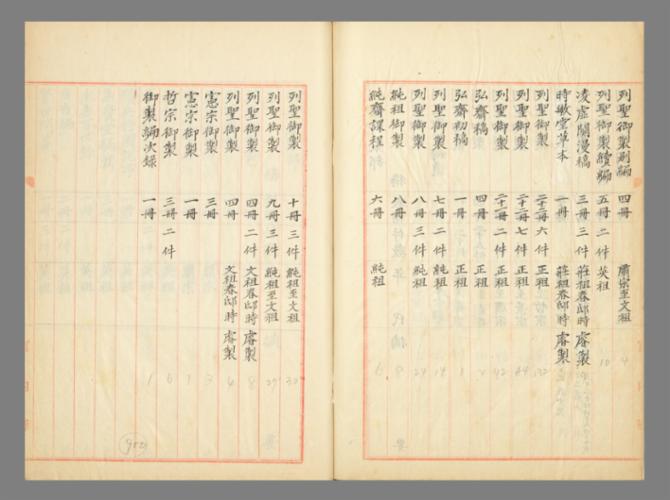 列聖御製別編 四冊 肅宗至文祖 4
列聖御製續編 五冊 二件 英祖 10
凌虛關漫稿 三冊 三件 莊祖春邸時睿製
時敏堂草本 一冊 莊祖春邸時睿製
列聖御製 二十二冊 六件 正祖 132
列聖御製 七件 正祖
列聖御製 二十一冊 二件 正祖 42
弘齋稿 四冊 正祖
弘齋初稿 一冊 正祖 1
列聖御製 七冊 二件 正祖 14
列聖御製 八冊 三件 純祖 24
純祖御製 八冊 純祖 8
純齋課程 六冊 純祖 6
列聖御製 十冊 三件 純祖至文祖 30
列聖御製 九冊 三件 純祖至文祖 27
列聖御製 四冊 二件 文祖春邸時睿製 8
列聖御製 四冊 文祖春邸時睿製 4
憲宗御製 三冊 3
憲宗御製 一冊 1
哲宗御製 三冊 二件 6
御製編次錄 一冊 1